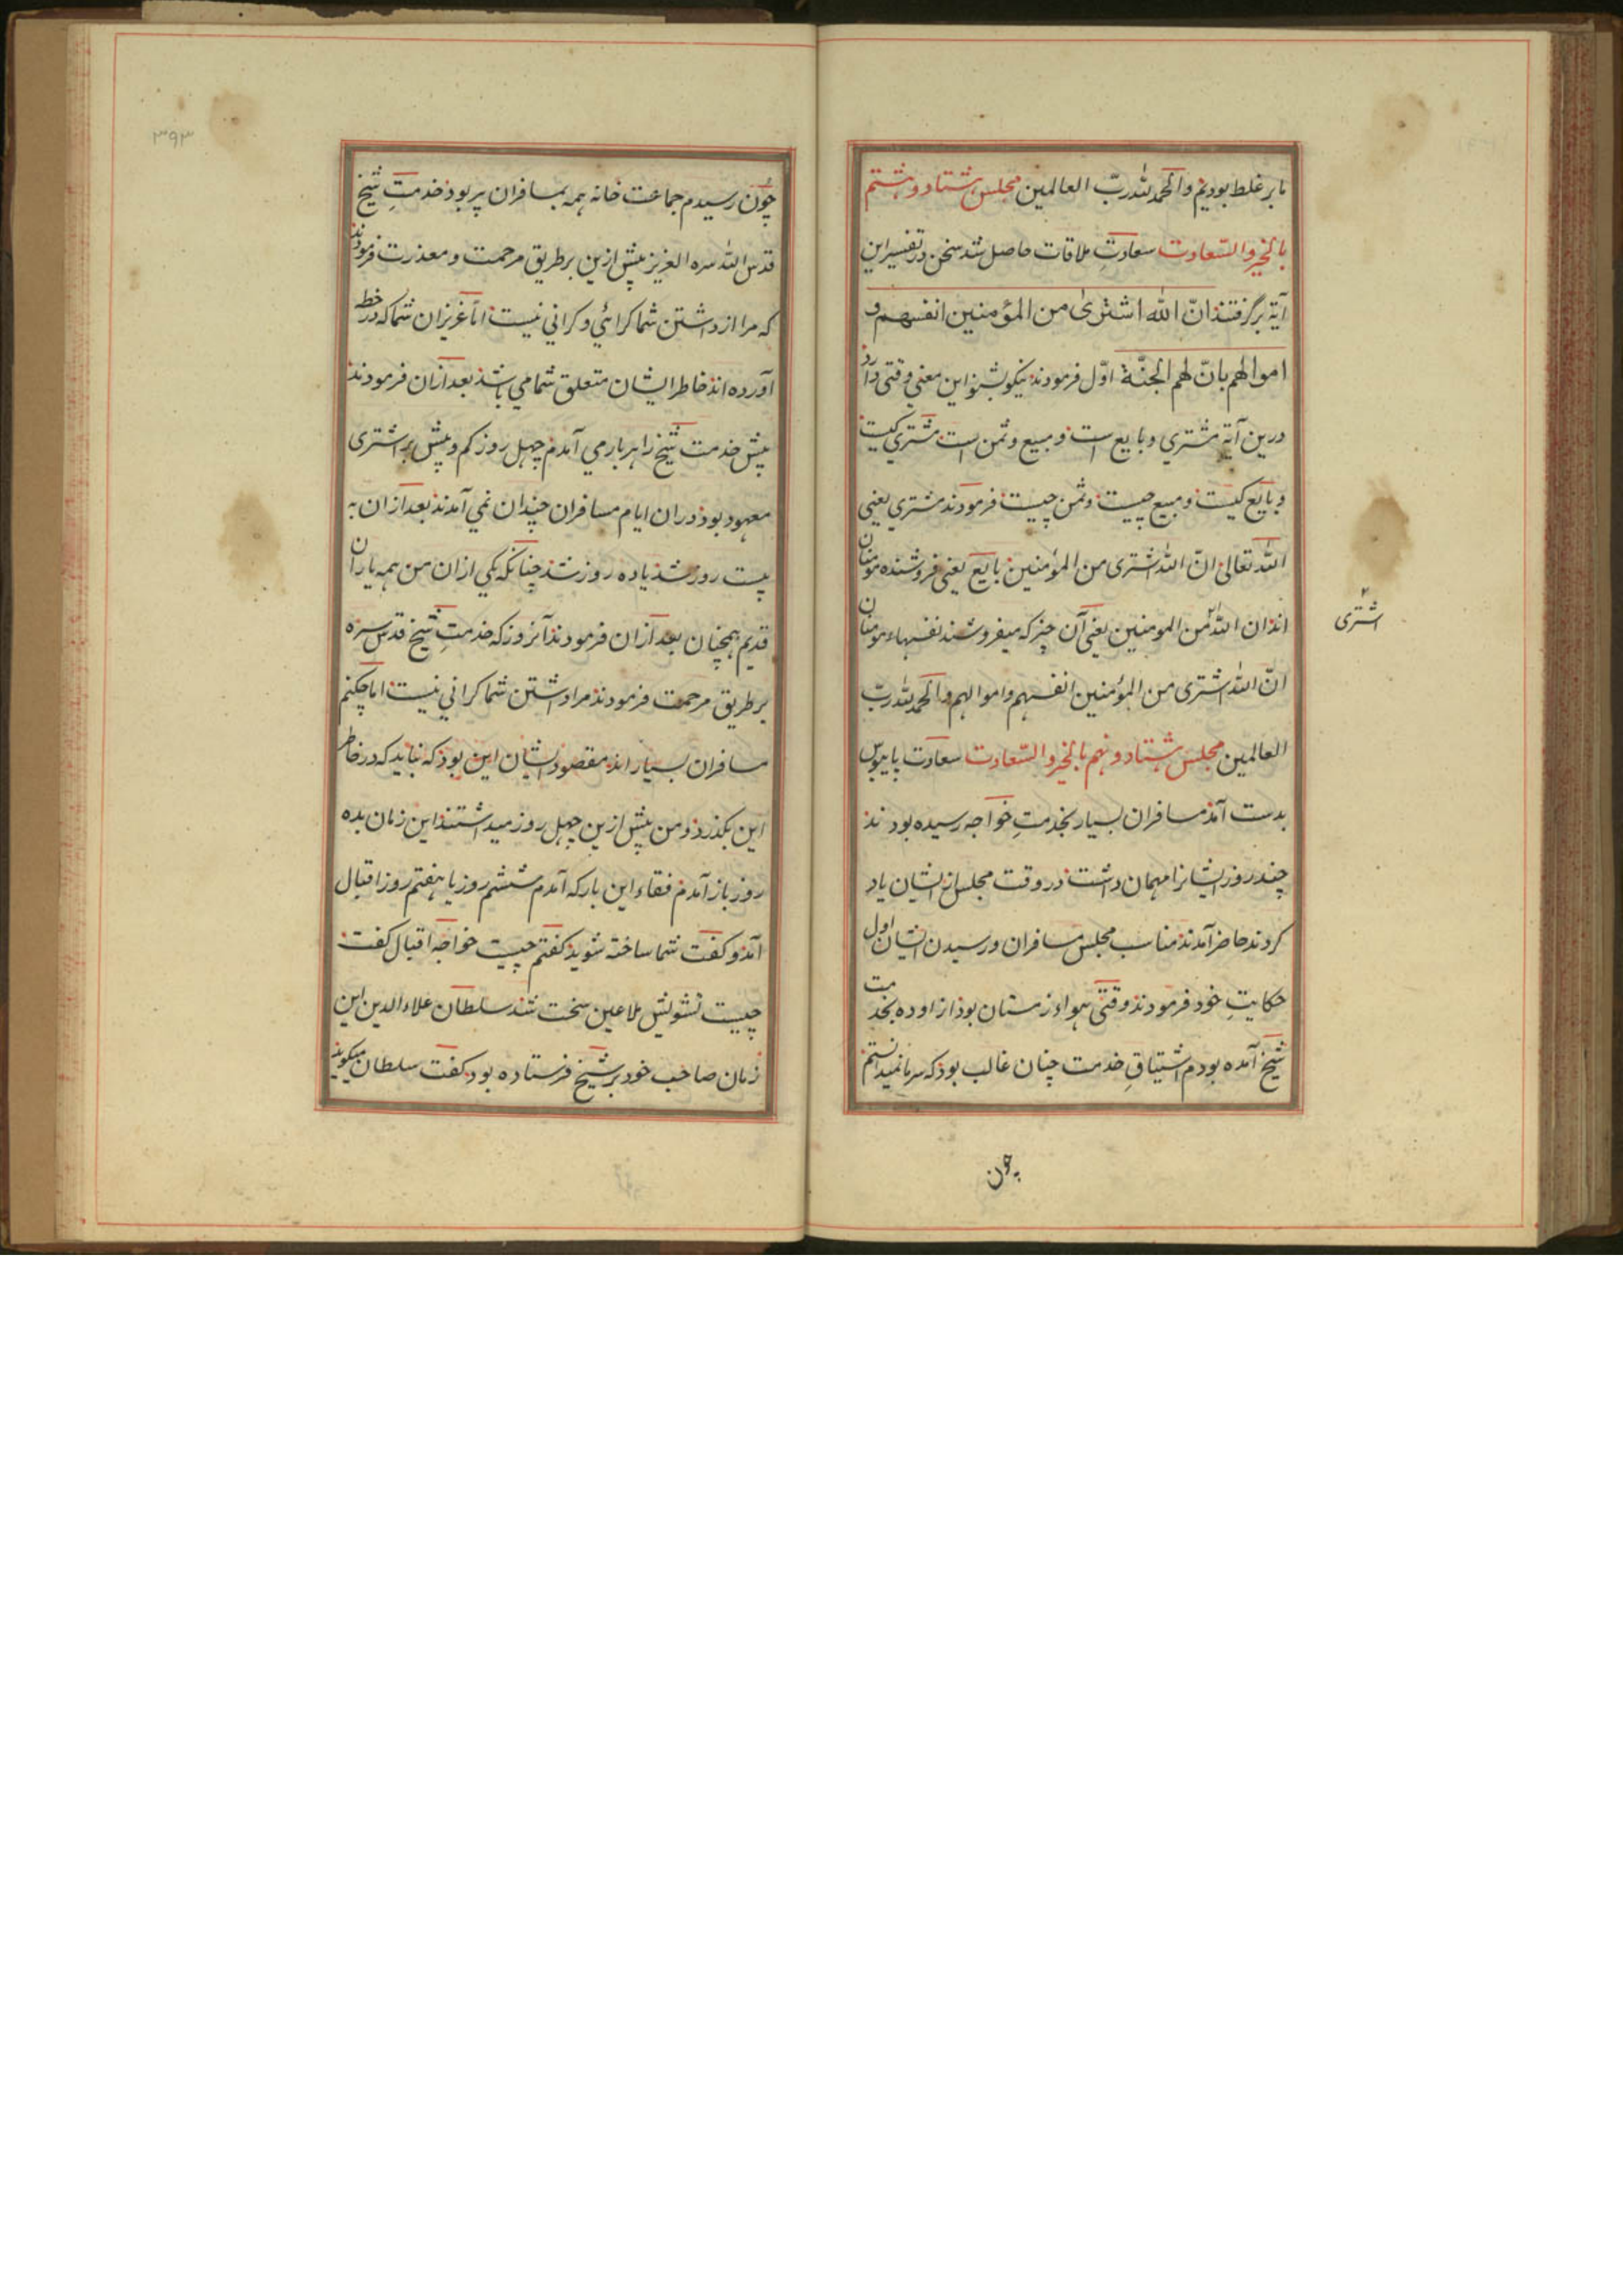 ما بر غلط بودیم والحمد لله ربّ العالمین مجلس هشتاد و هشتم
بالخیر والسّعادت سعادتِ ملاقات حاصل شد سخن در تفسیر این
آیة برگرفتند انّ الله اشتری من المؤمنین انفسهم و
اموالهم بانّ لهم الجنّة اوّل فرمودند نیکو بشنو این معنی وقتی دارد
درین آیة مشتری و بایع است و مبیع و ثمن است مشتری کیست
و بایع کیست و مبیع چیست و ثمن چیست فرمودند مشتری یعنی
الله تعالی انّ الله اشتری من المؤمنین بایع یعنی فروشنده مومنان
اند ان الله من المومنین یعنی آن چیز که میفروشند نفسهاء مومنان
اشتری
انّ الله اشتری من المؤمنین انفسهم و اموالهم والحمد لله ربّ
العالمین مجلس هشتاد و نهم بالخیر والسّعادت سعادت پایبوس
بدست آمد مسافران بسیار بخدمتِ خواجه رسیده بودند
چند روز ایشانرا مهمان داشت در وقت مجلس از ایشان یاد
کردند حاضر آمدند مناسب مجلس مسافران و رسیدن ایشان اول
حکایتِ خود فرمودند وقتی هواء زمستان بود از اوده بخدمت
شیخ آمده بودم اشتیاقِ خدمت چنان غالب بود که سرما نمیدانستم
چون
۳۹۳
چون رسیدم جماعت خانه همه بمسافران پر بود خدمتِ شیخ
قدس الله سره العزیز پیش ازین بر طریق مرحمت و معذرت فرمودند
که مرا از داشتن شما کرائی و کرانی نیست امّا عزیزان شما که در خطه
آورده اند خاطر ایشان متعلق شما می باشد بعد ازان فرمودند
پیش خدمت شیخ را هر بار می آمدم چهل روز کم و بیش بر اشتری
معهود بود دران ایام مسافران چندان نمی آمدند بعد ازان به
بیست روز شد یا ده روز شد چنانکه یکی ازان من همه یاران
قدیم همچنان بعد ازان فرمودند آنروز که خدمتِ شیخ قدس سره
بر طریق مرحمت فرمودند مرا داشتن شما کرانی نیست اما چکنم
مسافران بسیار اند مقصود ایشان این بود که نباید که در خاطر
این بگذرد و من پیش ازین چهل روز میداشتند این زمان بده
روز باز آمدم فقاء این بار که آمدم ششم روز یا هفتم روز اقبال
آمد و کفت شما ساخته شوید کفتم چیست خواجه اقبال کفت
چیست تشویش ملاعین سخت شد سلطان علاء الدین این
زمان صاحب خود بر شیخ فرستاده بود کفت سلطان میکوید